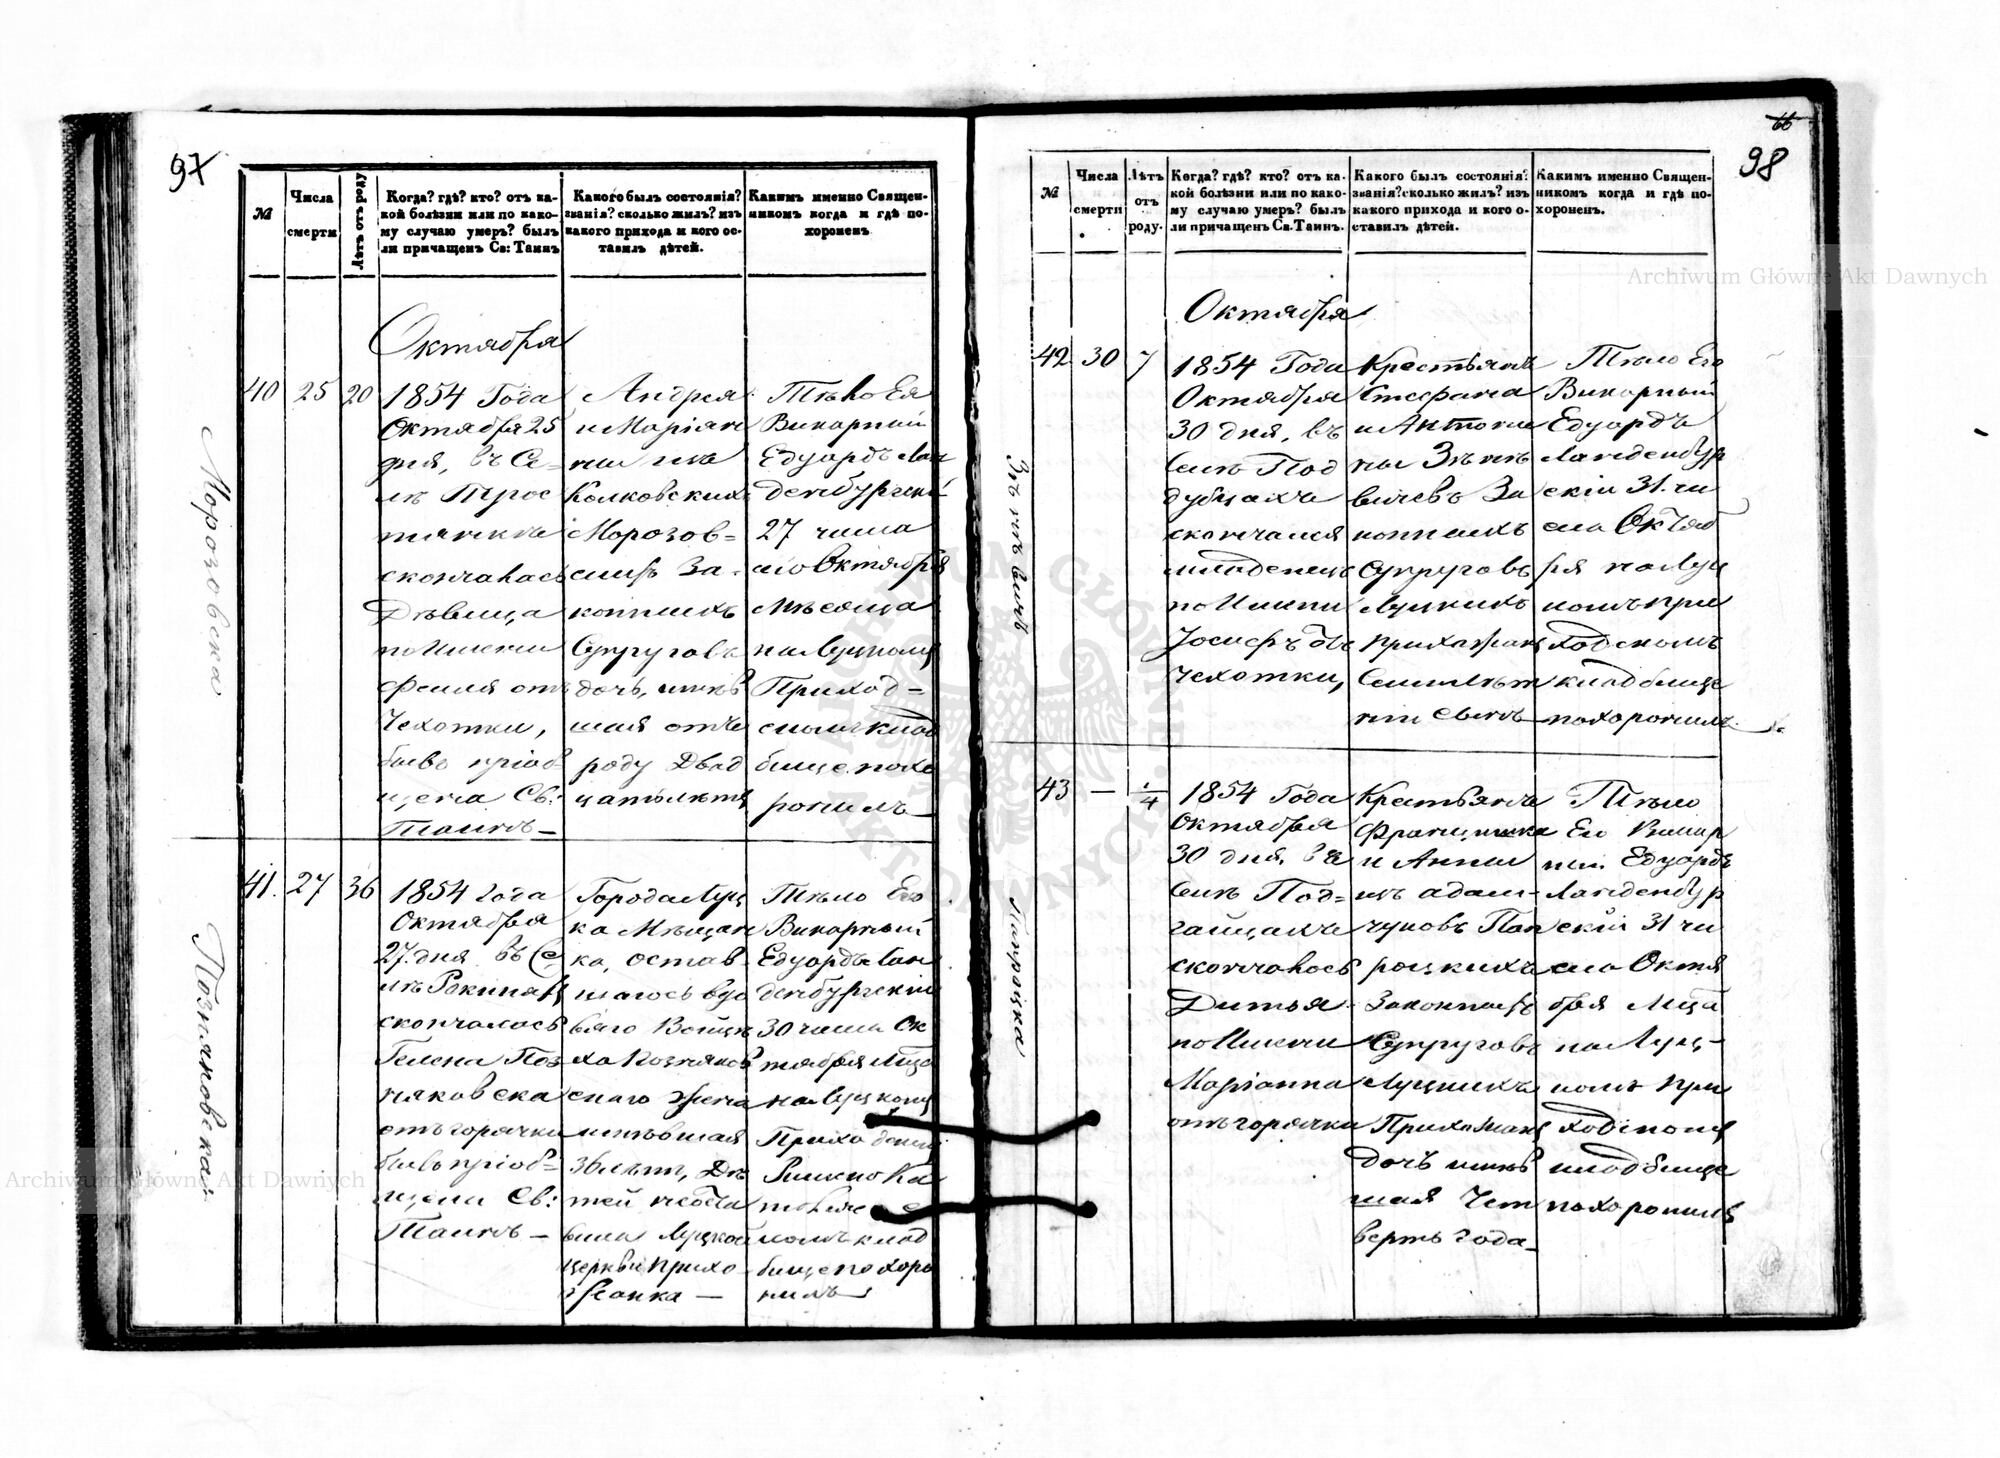 97
№
Числа
смерти
Лѣтъ отъ роду
Когда? гдѣ? кто? отъ ка-
кой болѣзни или по како-
му случаю умеръ? былъ
ли причащенъ Св: Таинъ
Какого былъ состоянія?
званія? сколько жилъ? изъ
какого прихода и кого ос-
тавилъ дѣтей.
Какимъ именно Священ-
никомъ когда и гдѣ по-
хороненъ
Октября
Морозовска
40
25
20
1854 Года
Октября 25
дня, въ Се-
лѣ Трос
тянкѣ
скончалась
Дѣвица
по Имени
отъ
Чехотки,
бывъ пріоб-
щена Св:
Таинъ —
Андрея
и Маріян
ны изъ
Колковскихъ
Морозов=
скихъ За-
конныхъ
Супруговъ
дочь, имѣв
шая отъ
роду Двад
цать лѣтъ
Тѣло Ея
Викарный
Едуардъ Лан
денбургскій
27 числа
сего Октября
Мѣсяца
на Луцкомъ
Приход=
скомъ клад
бище похо
ронилъ —
Позняковская
41.
27
36
1854 года
Октября
27 дня въ Се
лѣ
скончалась
Гелена Поз
няковска
отъ горячки
бывъ пріоб=
щена Св:
Таинъ —
Города Луц
ка Мѣщан
ка, остав-
шаяся вдо
ваго
Позняков
скаго Жена
имѣвшая
36 лѣтъ, Дѣ
тей неоста
вила Луцкой
церкви прихо-
жанка —
Тѣло Его
Викарный
Едуардъ Лан
денбургскій
30 числа Ок
тября М-ца
на Луцкомъ
Приходскомъ
Римско Ка
толическ
комъ клад
бище похоро
нилъ —
66
98
№
Числа
смерти
Лѣтъ
отъ
роду.
Когда? гдѣ? кто? отъ ка-
кой болѣзни или по како-
му случаю умеръ? былъ
ли причащенъ Св. Таинъ.
Какого былъ состоянія?
званія? сколько жилъ? изъ
какого прихода и кого о-
ставилъ дѣтей.
Какимъ именно Священ-
никомъ когда и гдѣ по-
хороненъ.
Октября
42
30
7
1854 Года
Октября
30 дня, въ
Селѣ Под
дубцахъ
скончался
младенецъ
по Имени
Іосифъ отъ
Чехотки,
Крестьянъ
Стефана
и Антони
ны
За
конныхъ
Супруговъ
Луцкихъ
Прихожанъ
Семилѣт
ній сынъ —
Тѣло Его
Викарный
Едуардъ
Ланденбур
скій 31 чи
сла Октяб
ря на Луц
комъ при
ходскомъ
кладбище
похоронилъ.
43
—
1/4
Папроцка
1854 Года
Октября
30 дня, въ
Селѣ Под=
гайцахъ
скончалось
Дитья
по Имени
Маріанна
отъ горячки
Крестьянъ
Францишка
и Анны
изъ Адам-
чуковъ Пап
роцкихъ
Законныхъ
Супруговъ
Луцкихъ
Прихожанъ
дочь имѣв
шая Чет
верть года —
Тѣло
Ею Викар
ный Едуардъ
Ланденбур
скій 31 чи
сла Октя
бря М-ца
на Луц-
комъ При
ходскомъ
кладбище
похоронилъ
Archiwum Główne Akt Dawnych
Archiwum Główne Akt Dawnych
ARCHIWUM GŁÓWNE AKT DAWNYCH